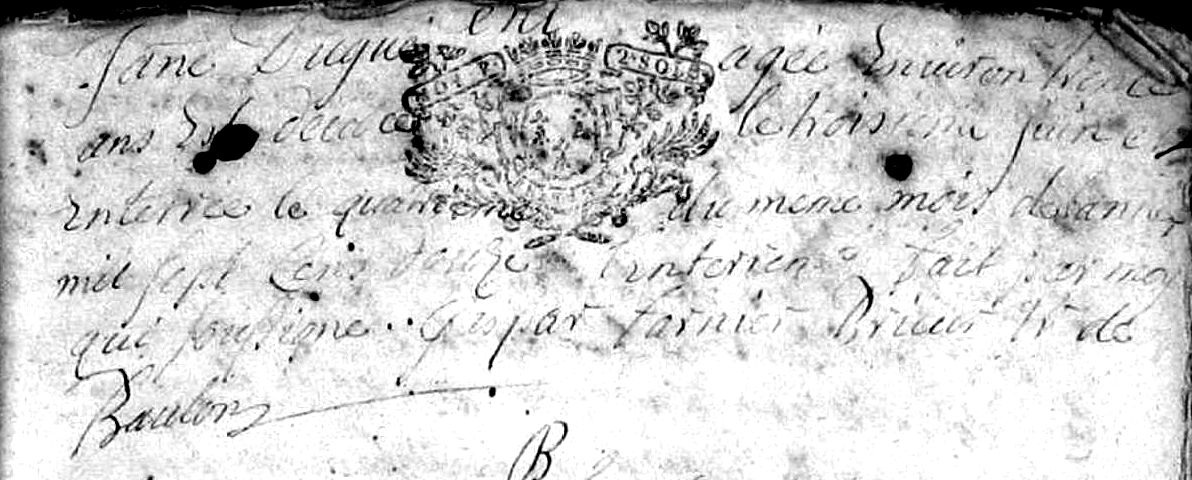 Jane Dugue agée Environ trente
ans Est decedee le troisieme juin et
Enterree le quatrieme du meme mois de lannee
mil sept Cens douze lenterien^t fait par moy
qui soussigne Gaspar farnier Prieur Vr de
Baulon